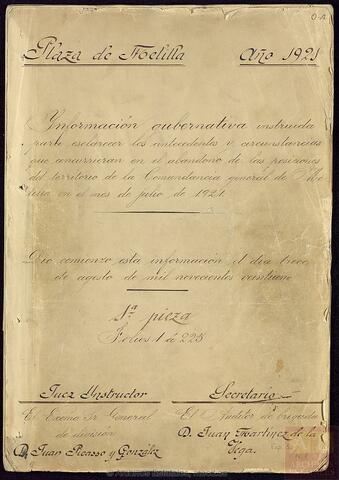 Plaza de Melilla Año 1921
Ynformación gubernativa instruida
para esclarecer los antecedentes y circunstancias
que concurrieran en el abandono de las posiciones
del territorio de la Comandancia general de Me-
lilla en el mes de julio de 1921
Dio comienzo esta información el dia trece
de agosto de mil novecientos veintiuno
1ª pieza
Folios 1 á 225
Juez Ynstructor
El Excmo Sr General
de división
D. Juan Picasso y González
Secretario
El Auditor de brigada
D. Juan Martínez de la
Vega.